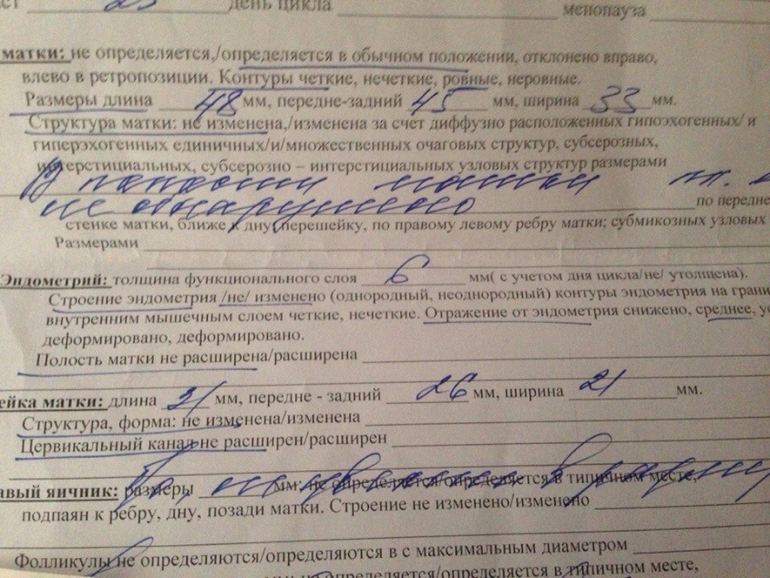 ст 23 день цикла менопауза
матки: не определяется,/определяется в обычном положении, отклонено вправо,
влево в ретропозиции. Контуры четкие, нечеткие, ровные, неровные.
Размеры длина 48 мм, передне-задний 45 мм, ширина 33 мм.
Структура матки: не изменена,/изменена за счет диффузно расположенных гипоэхогенных/ и
гиперэхогенных единичных/и/множественных очаговых структур, субсерозных,
интерстициальных, субсерозно – интерстициальных узловых структур размерами
В полости матки пл.
не обнаружено по передне
стенке матки, ближе к дну, перешейку, по правому левому ребру матки; субмикозных узловых
Размерами
Эндометрий: толщина функционального слоя 6 мм( с учетом дня цикла/не/ утолщена).
Строение эндометрия /не/ изменено (однородный, неоднородный) контуры эндометрия на грани
внутренним мышечным слоем четкие, нечеткие. Отражение от эндометрия снижено, среднее, ус
деформировано, деформировано.
Полость матки не расширена/расширена
ейка матки: длина 31 мм, передне - задний 26 мм, ширина 21 мм.
Структура, форма: не изменена/изменена
Цервикальный канал не расширен/расширен
авый яичник: размеры мм: не определяется/определяется в типичном месте,
подпаян к ребру, дну, позади матки. Строение не изменено/изменено
Фолликулы не определяются/определяются в с максимальным диаметром
мм не определяется/определяется в типичном месте,